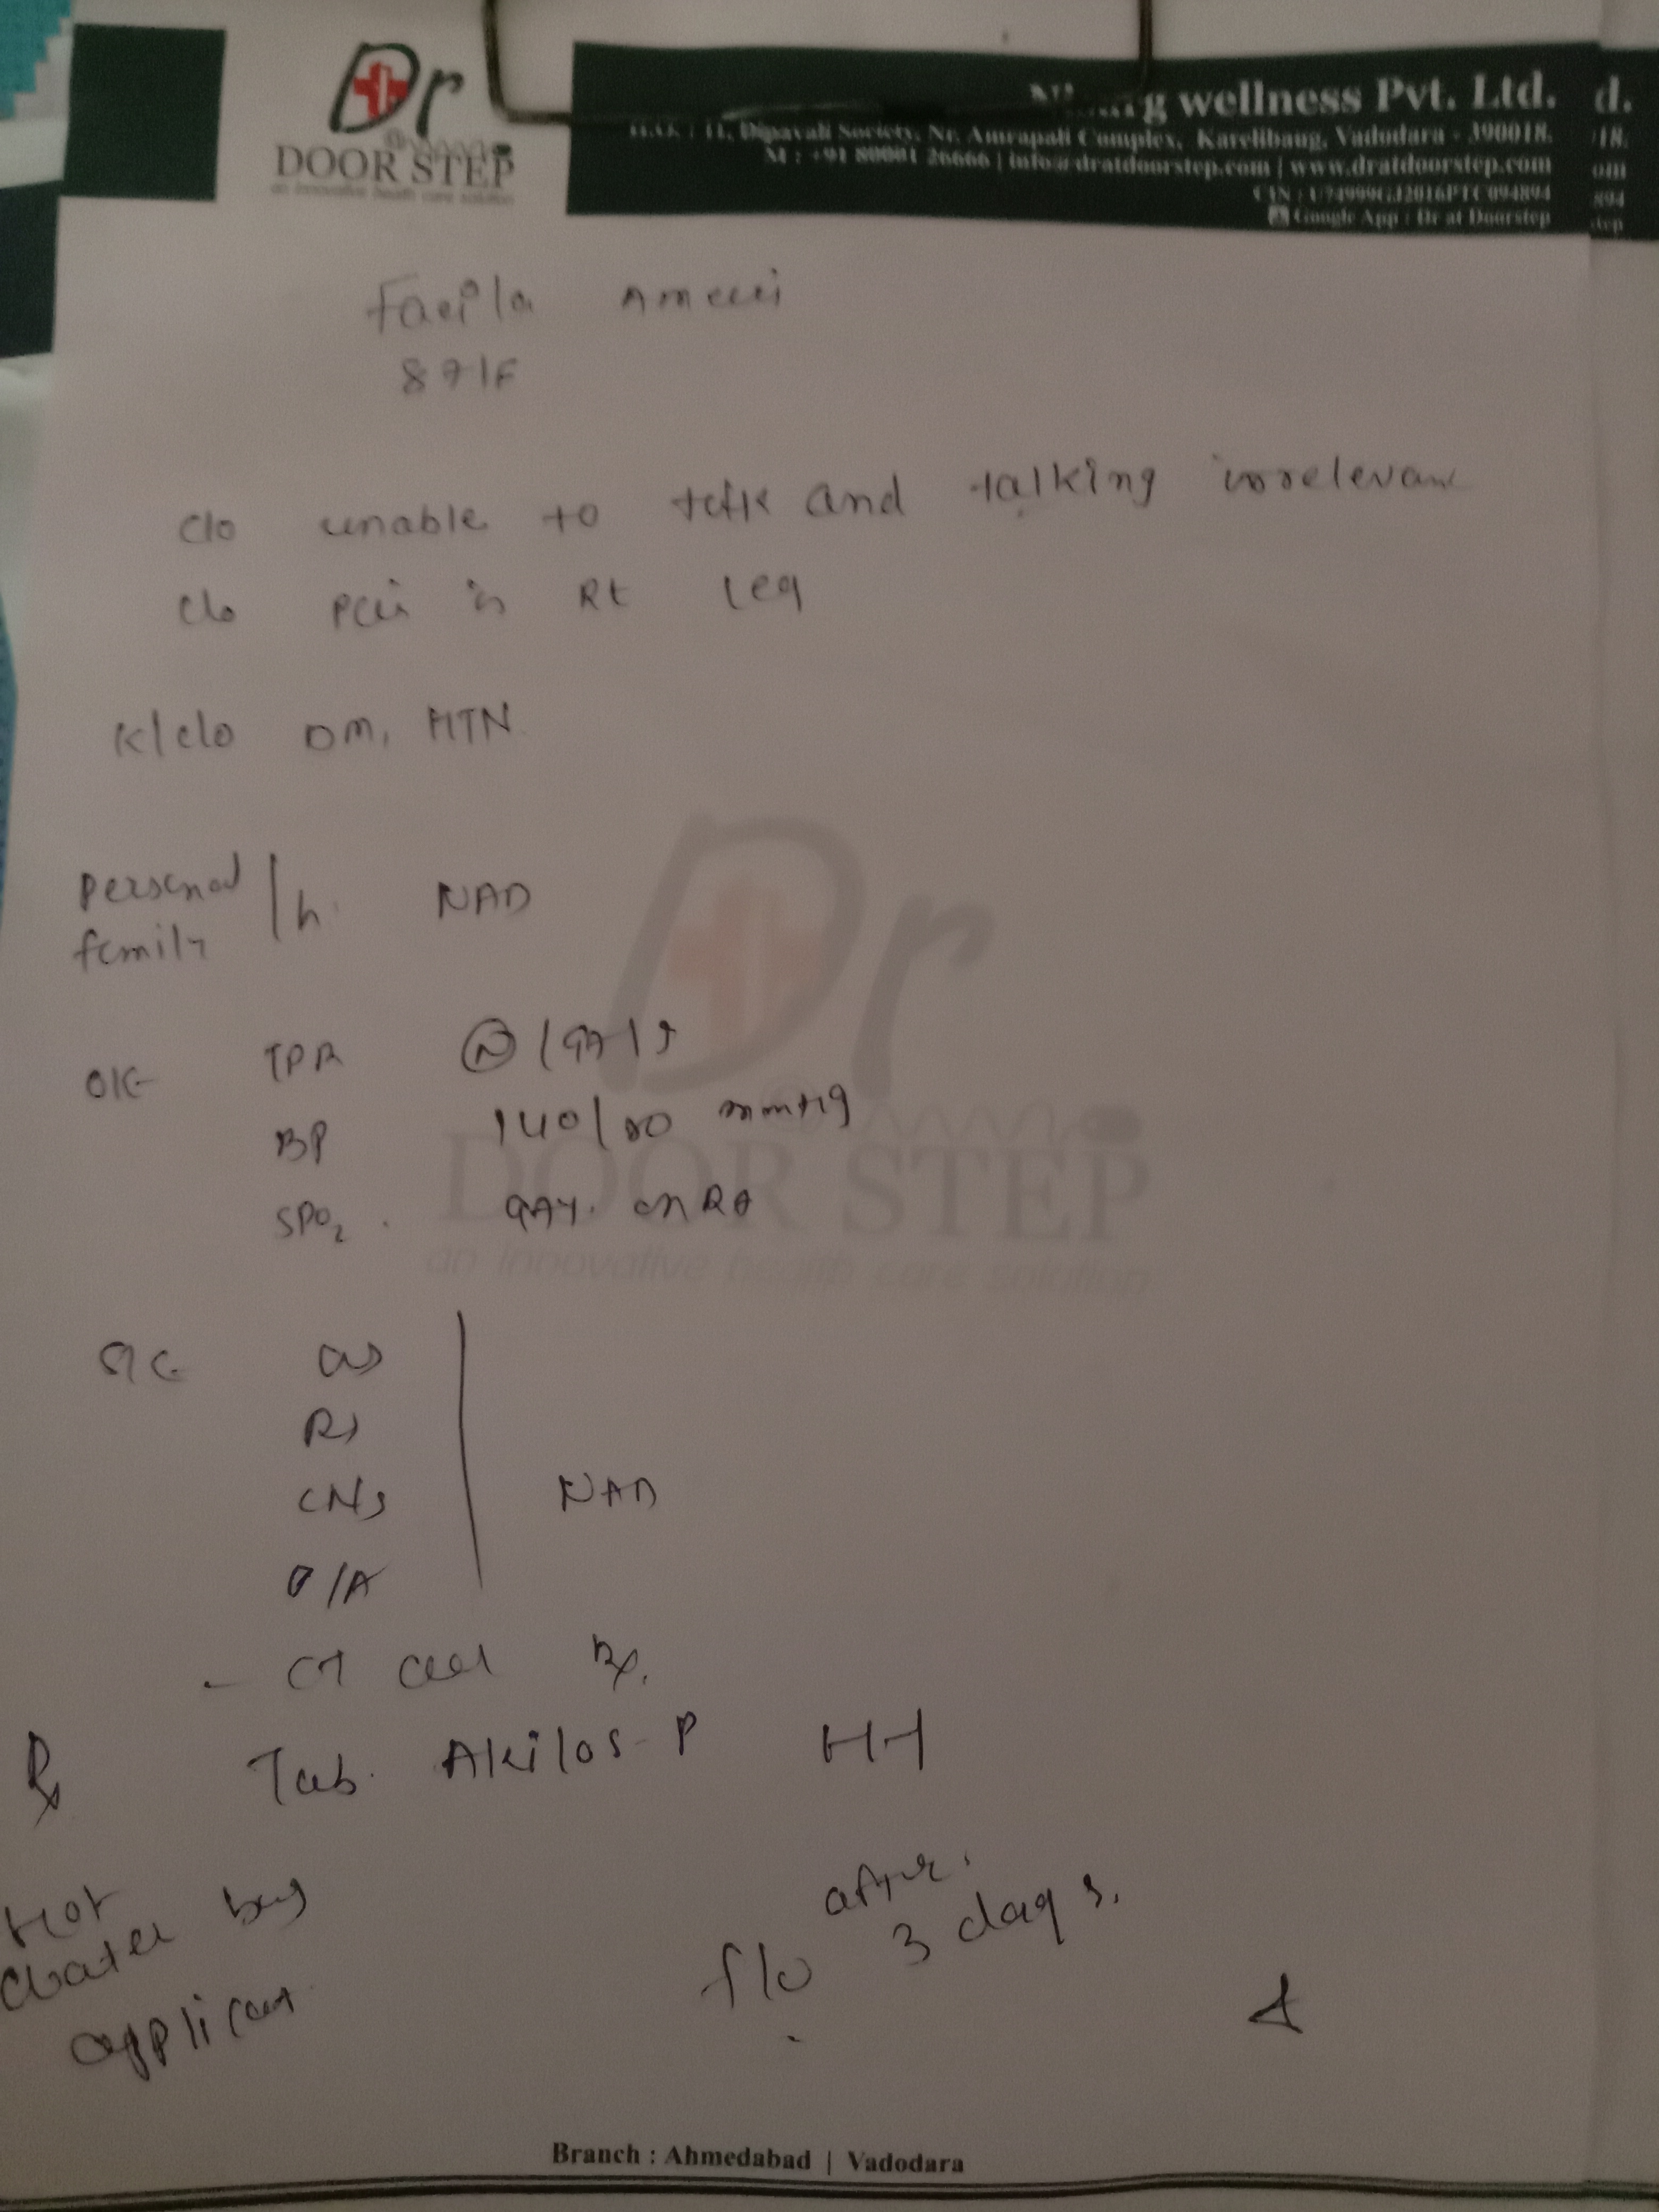 Dr
DOOR STEP
an innovative health care solution
g wellness Pvt. Ltd. d.
11, Dipavali Society, Nr. Amrapali Complex, Karelibaug, Vadodara - 390018. 18.
M : +91 80001 26666 | info@dratdoorstep.com | www.dratdoorstep.com om
CIN : U74999GJ2016PTC094894 894
Google App : Dr at Doorstep step
87/F
c/o unable to talk and talking irrelevant
c/o pain in Rt leg
K/c/o DM, HTN
personal
family /h. NAD
O/E TPR (N) /
BP 140/80 mmHg
SPO2 on RA
S/E CVS
RS
CNS NAD
P/A
- CT all Rx.
Rx Tab. Akilos-P
Hot
water bag
after
f/o 3 days.
Dr
DOOR STEP
an innovative health care solution
Branch : Ahmedabad | Vadodara